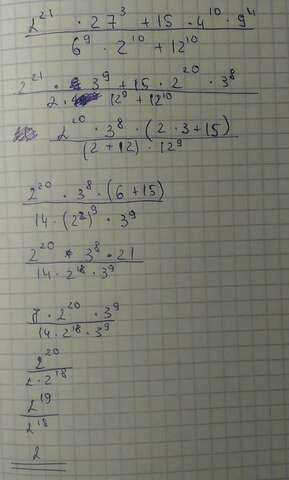 2^21 · 27^3 + 15 · 4^10 · 9^4
6^9 · 2^10 + 12^10
2^21 · 3^9 + 15 · 2^20 · 3^8
2 · 12^9 + 12^10
2^20 · 3^8 · (2 · 3 + 15)
(2 + 12) · 12^9
2^20 · 3^8 · (6 + 15)
14 · (2^2)^9 · 3^9
2^20 · 3^8 · 21
14 · 2^18 · 3^9
7 · 2^20 · 3^9
14 · 2^18 · 3^9
2^20
2 · 2^18
2^19
2^18
2